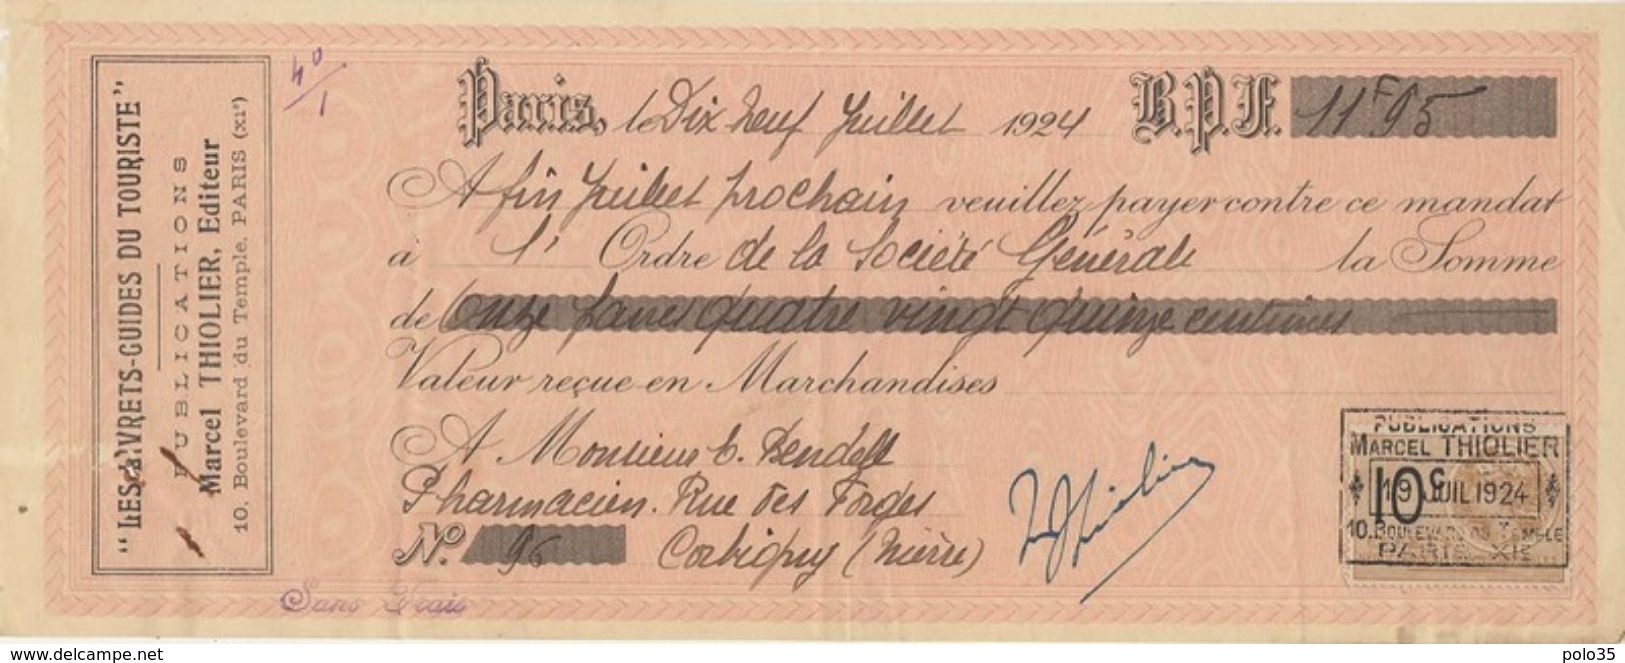 "LES LIVRETS-GUIDES DU TOURISTE"
PUBLICATIONS
Marcel THIOLIER, Editeur
10, Boulevard du Temple, PARIS (XIe)
40/1
Paris, le Dix Neuf Juillet 1924 B.P.F. 11F95
A fin Juillet prochain veuillez payer contre ce mandat
à l' Ordre de la Société Générale la Somme
de Onze francs quatre vingt quinze centimes
Valeur reçue en Marchandises
A Monsieur
Pharmacien. Rue des Forges
No. 96 Corbigny (Nièvre)
Sans Frais
M Thiolier
PUBLICATIONS
MARCEL THIOLIER
10c
19 JUIL 1924
10. BOULEVARD DU TEMPLE
PARIS XIE
www.delcampe.net
polo35